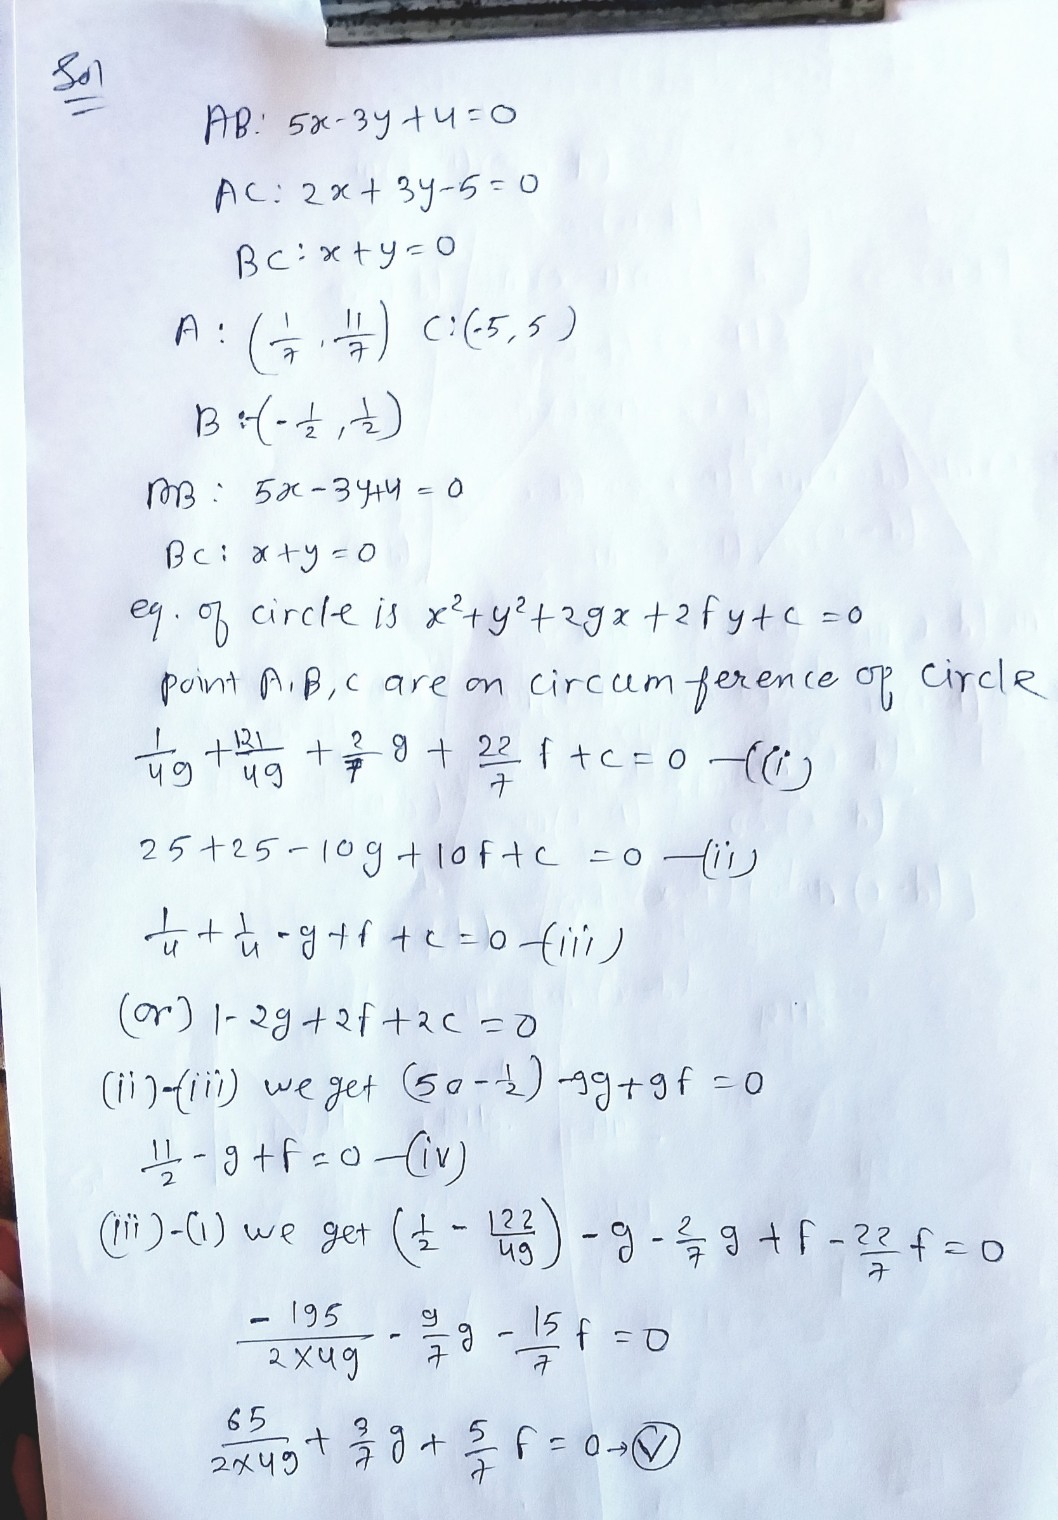 Sol
AB: 5x-3y+4=0
AC: 2x+3y-5=0
BC: x+y=0
A: (1/7, 11/7) C:(-5,5)
B:(-1/2, 1/2)
AB: 5x-3y+4=0
BC: x+y=0
eq. of circle is x²+y²+2gx+2fy+c=0
point A,B,C are on circumference of circle
1/49 + 121/49 + 2/7 g + 22/7 f + c = 0 -(i)
25+25-10g+10f+c = 0 -(ii)
1/4 + 1/4 - g + f + c = 0 -(iii)
(or) 1-2g+2f+2c=0
(ii)-(iii) we get (50-1/2) -9g+9f=0
11/2 - g + f = 0 -(iv)
(iii)-(i) we get (1/2 - 122/49) - g - 2/7 g + f - 22/7 f = 0
-195/2×49 - 9/7 g - 15/7 f = 0
65/2×49 + 3/7 g + 5/7 f = 0 → (V)